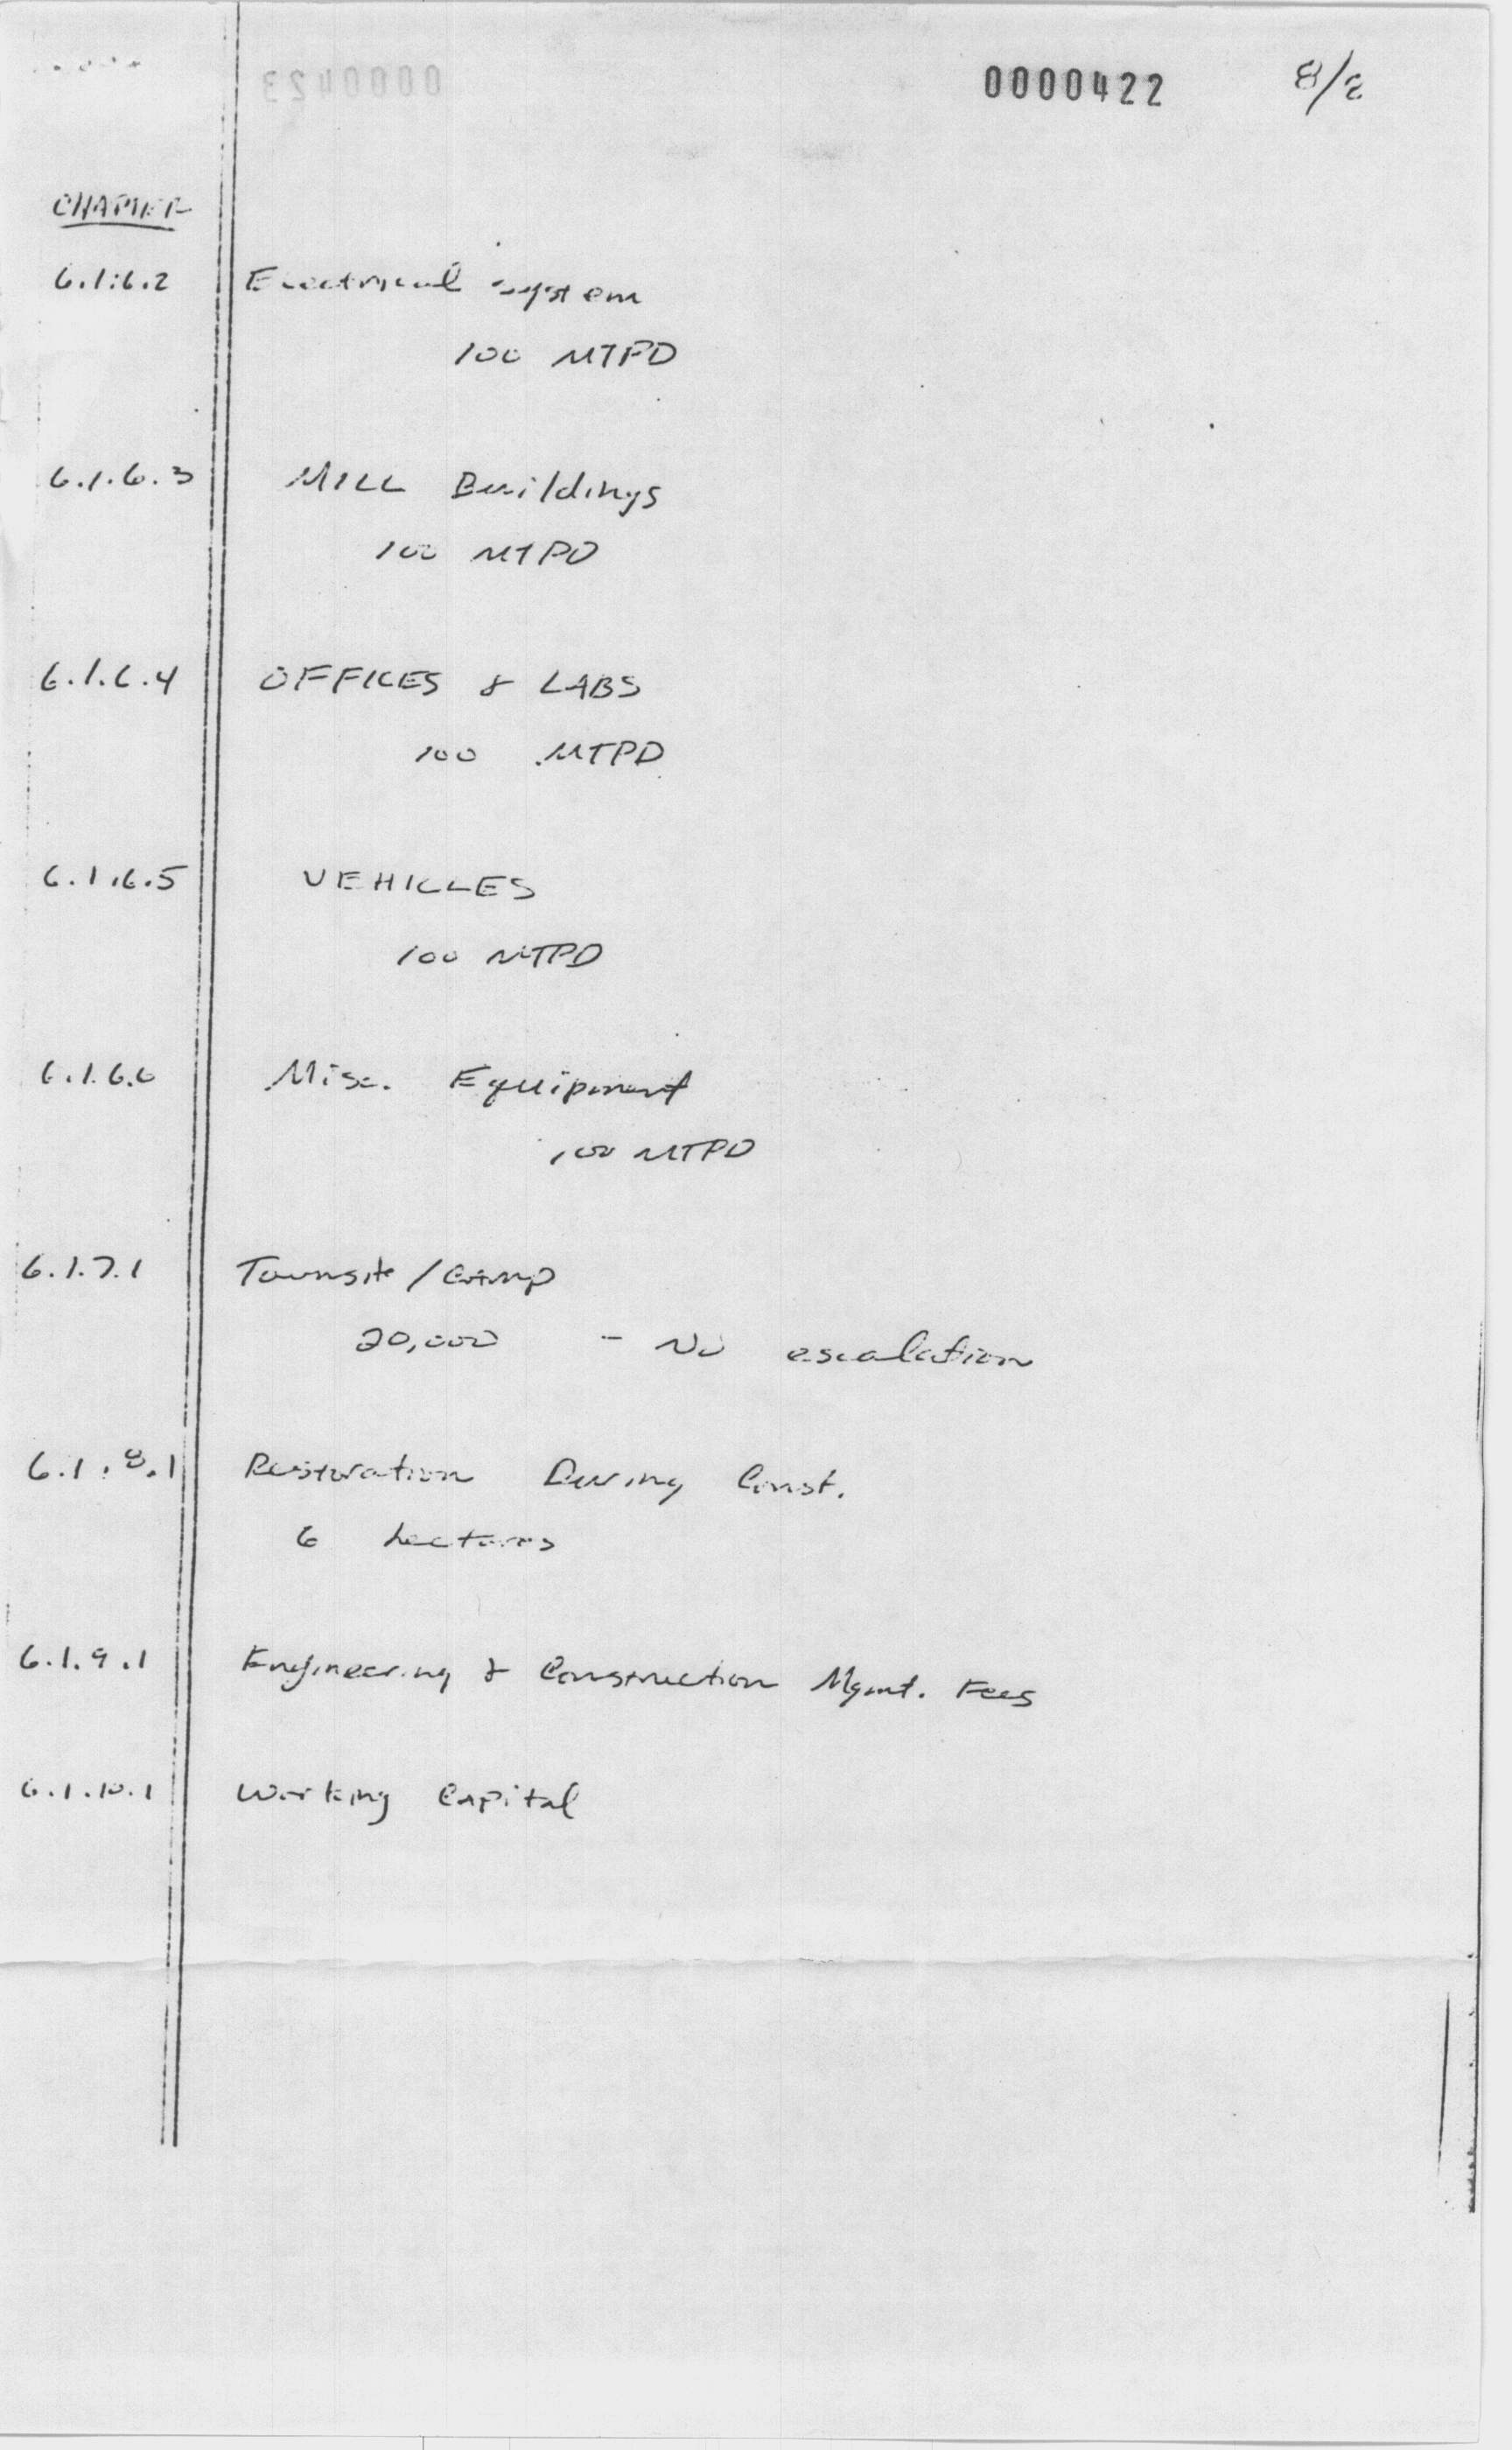 0000422 8/8
CHAPTER
6.1.6.2 Electrical system
100 MTPD
6.1.6.3 MILL Buildings
100 MTPD
6.1.6.4 OFFICES & LABS
100 MTPD
6.1.6.5 VEHICLES
100 MTPD
6.1.6.6 Misc. Equipment
100 MTPD
6.1.7.1 Townsite / Camp
20,000 - No escalation
6.1.8.1 Restoration During Const.
6 hectares
6.1.9.1 Engineering & Construction Mgmt. Fees
6.1.10.1 Working Capital